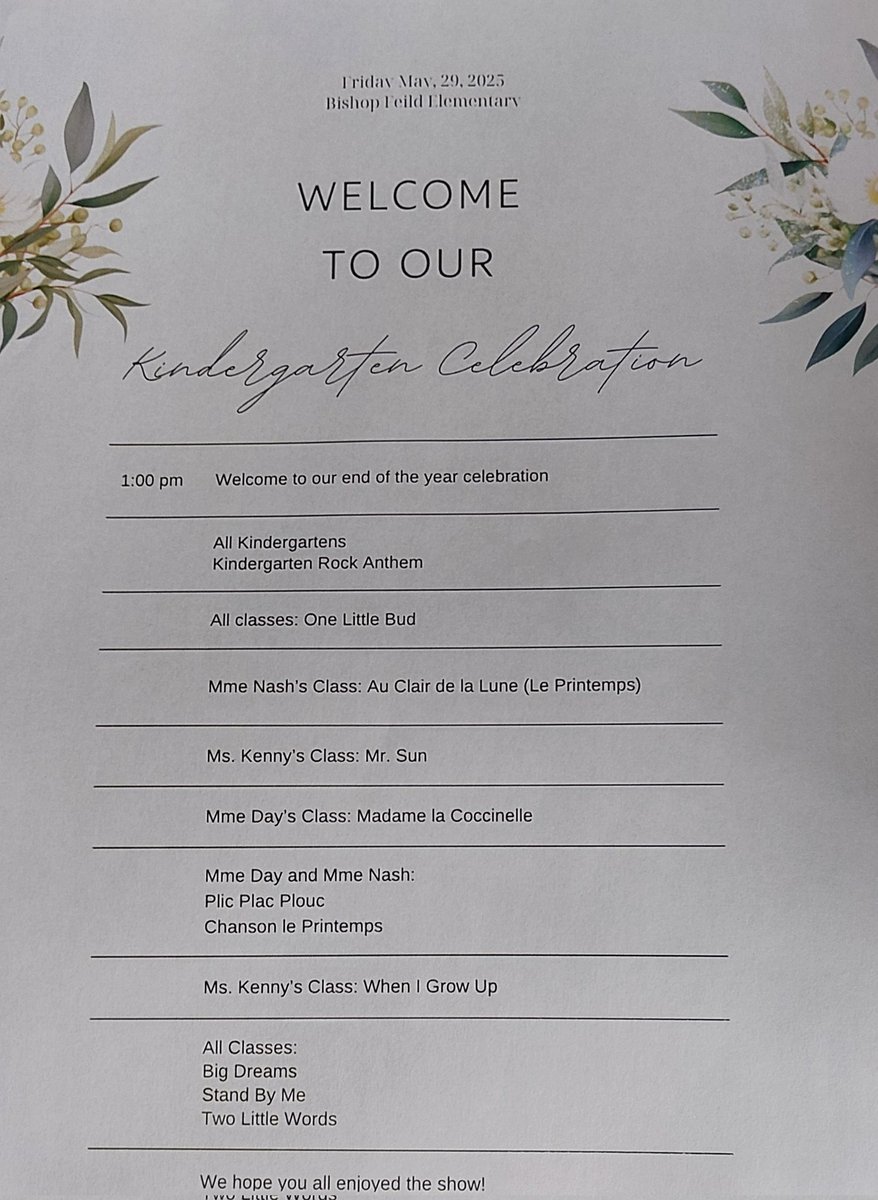 Friday May, 29, 2025
Bishop Feild Elementary
WELCOME
TO OUR
Kindergarten Celebration
1:00 pm Welcome to our end of the year celebration
All Kindergartens
Kindergarten Rock Anthem
All classes: One Little Bud
Mme Nash's Class: Au Clair de la Lune (Le Printemps)
Ms. Kenny's Class: Mr. Sun
Mme Day's Class: Madame la Coccinelle
Mme Day and Mme Nash:
Plic Plac Plouc
Chanson le Printemps
Ms. Kenny's Class: When I Grow Up
All Classes:
Big Dreams
Stand By Me
Two Little Words
We hope you all enjoyed the show!
Two Little Words